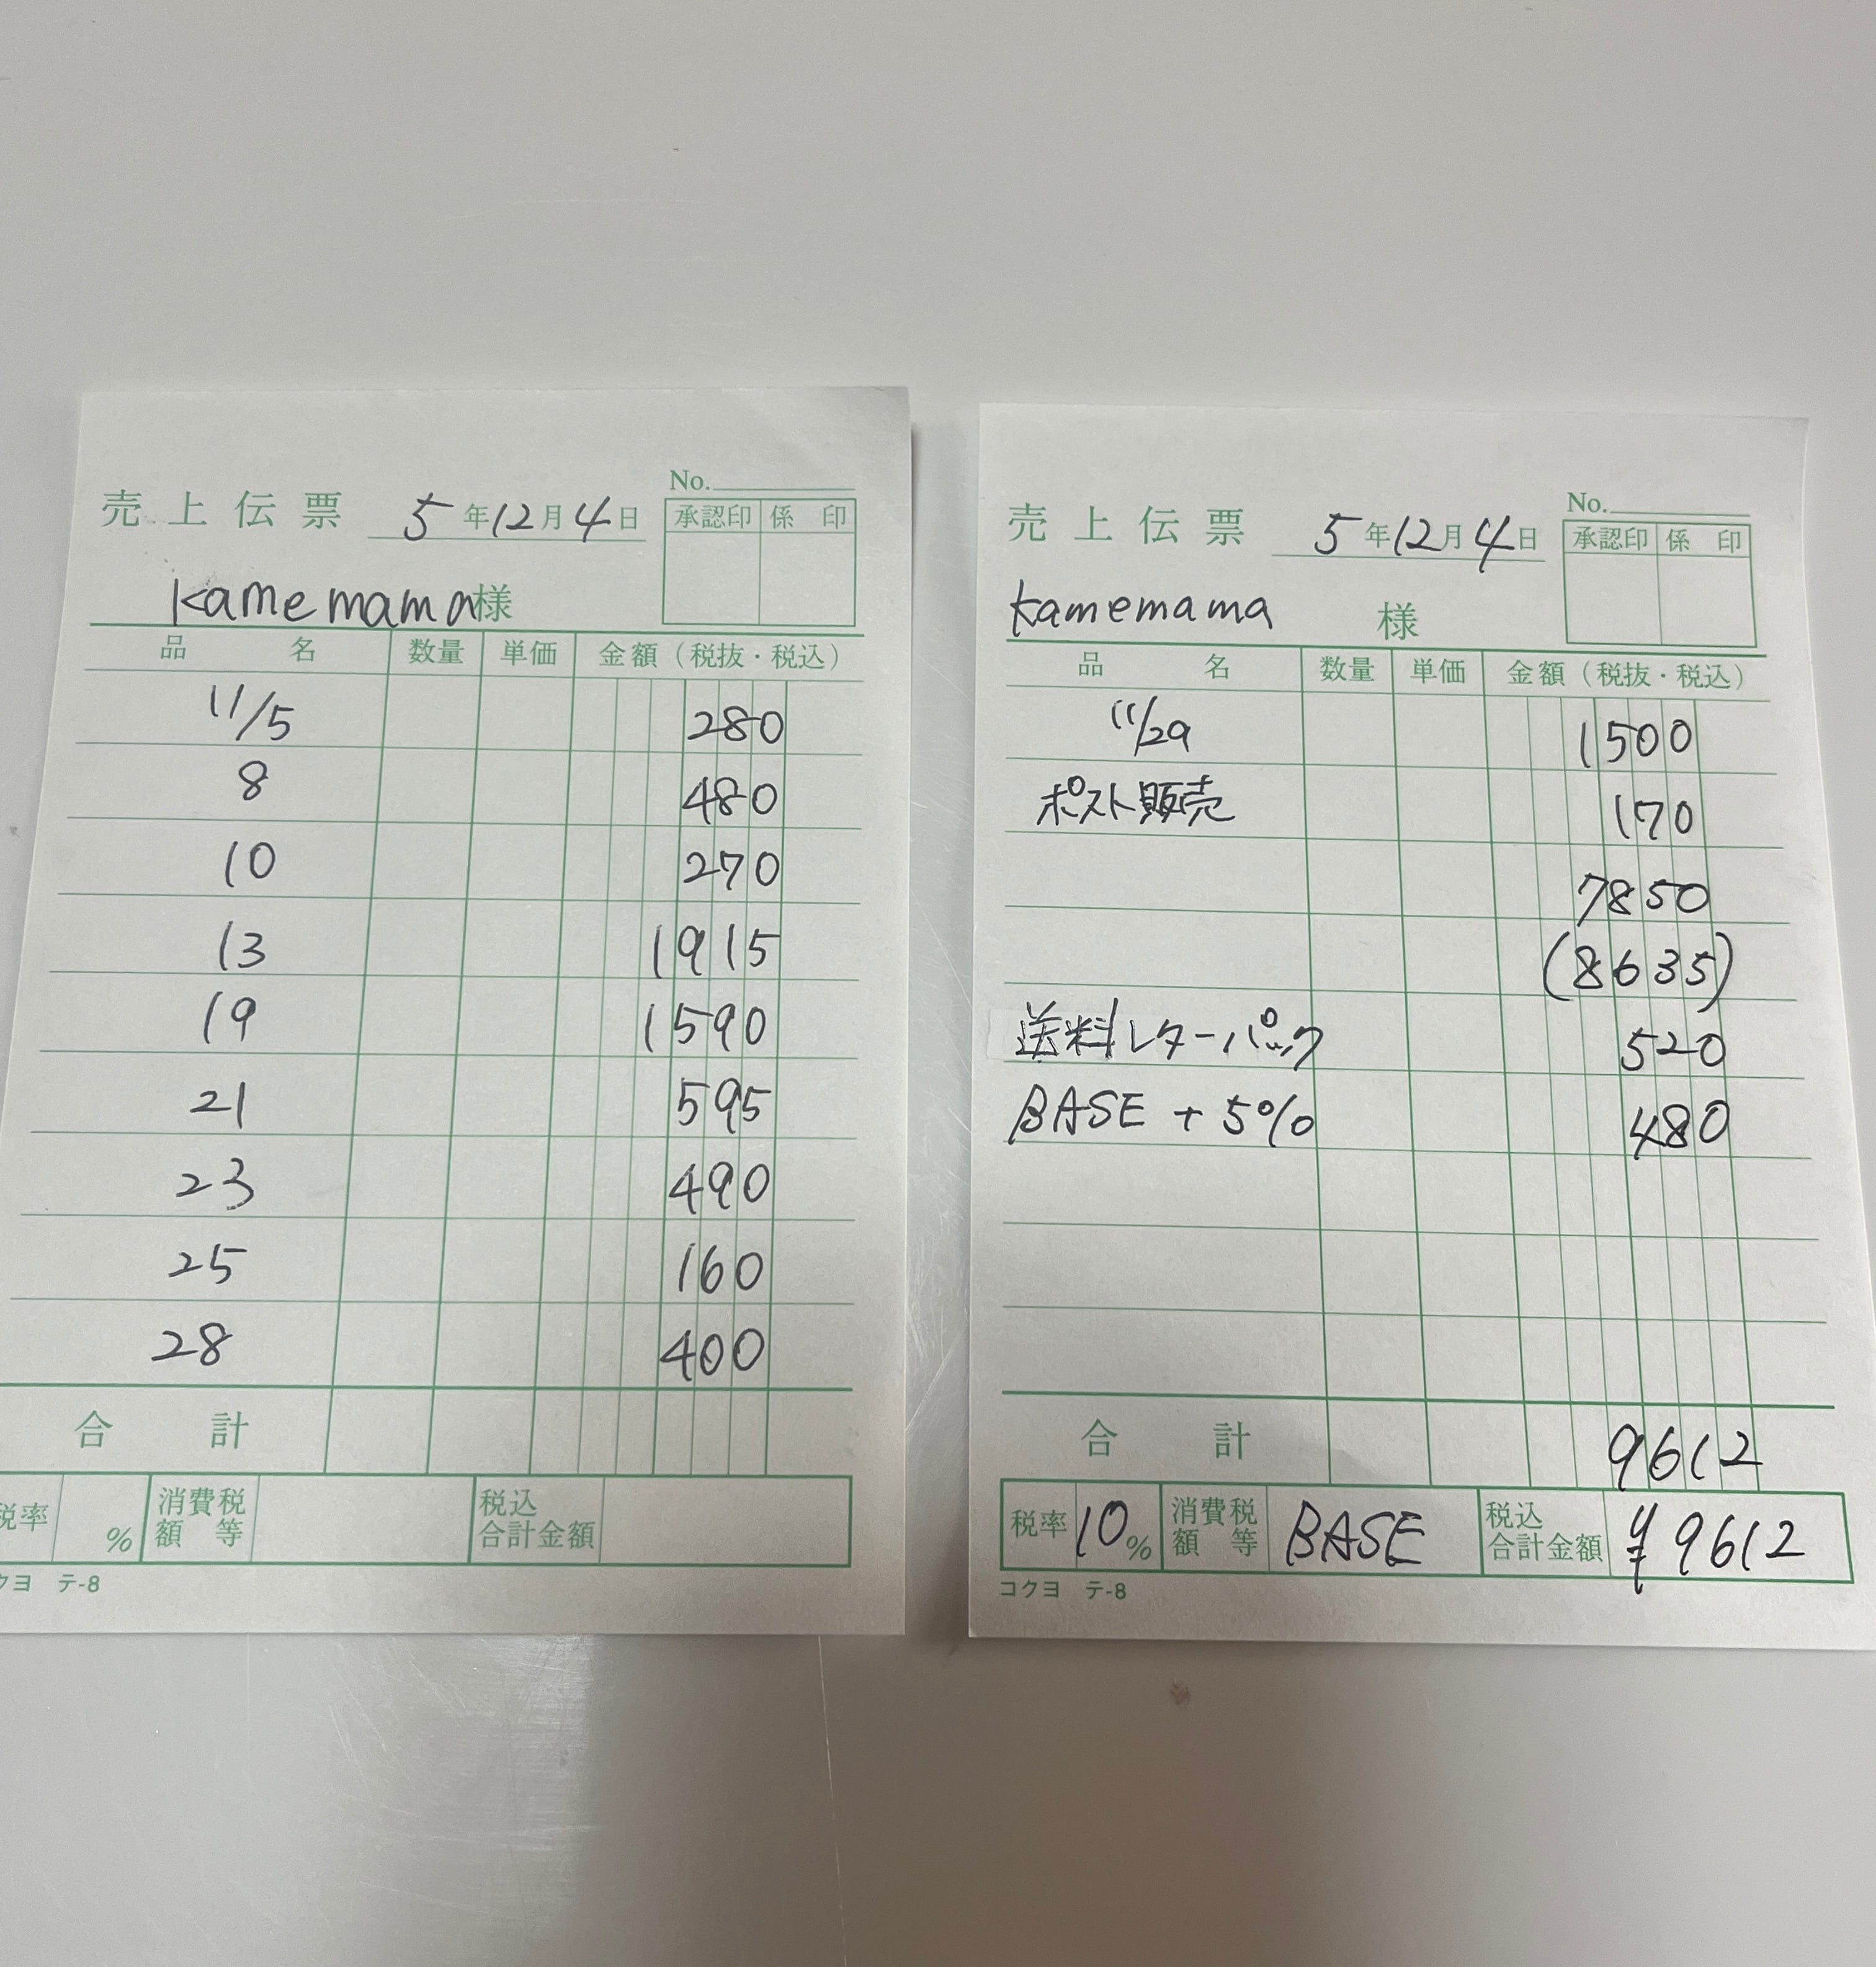 No.
売上伝票 5年12月4日
承認印 係印
kamemama様
品名 数量 単価 金額(税抜・税込)
11/5 280
8 480
10 270
13 1915
19 1590
21 595
23 490
25 160
28 400
合計
税率 % 消費税額等 税込合計金額
クヨ テ-8
No.
売上伝票 5年12月4日
承認印 係印
kamemama 様
品名 数量 単価 金額(税抜・税込)
11/29 1500
ポスト販売 170
7850
(8635)
送料レターパック 520
BASE + 5% 480
合計 9612
税率 10% 消費税額等 BASE 税込合計金額 ¥9612
コクヨ テ-8